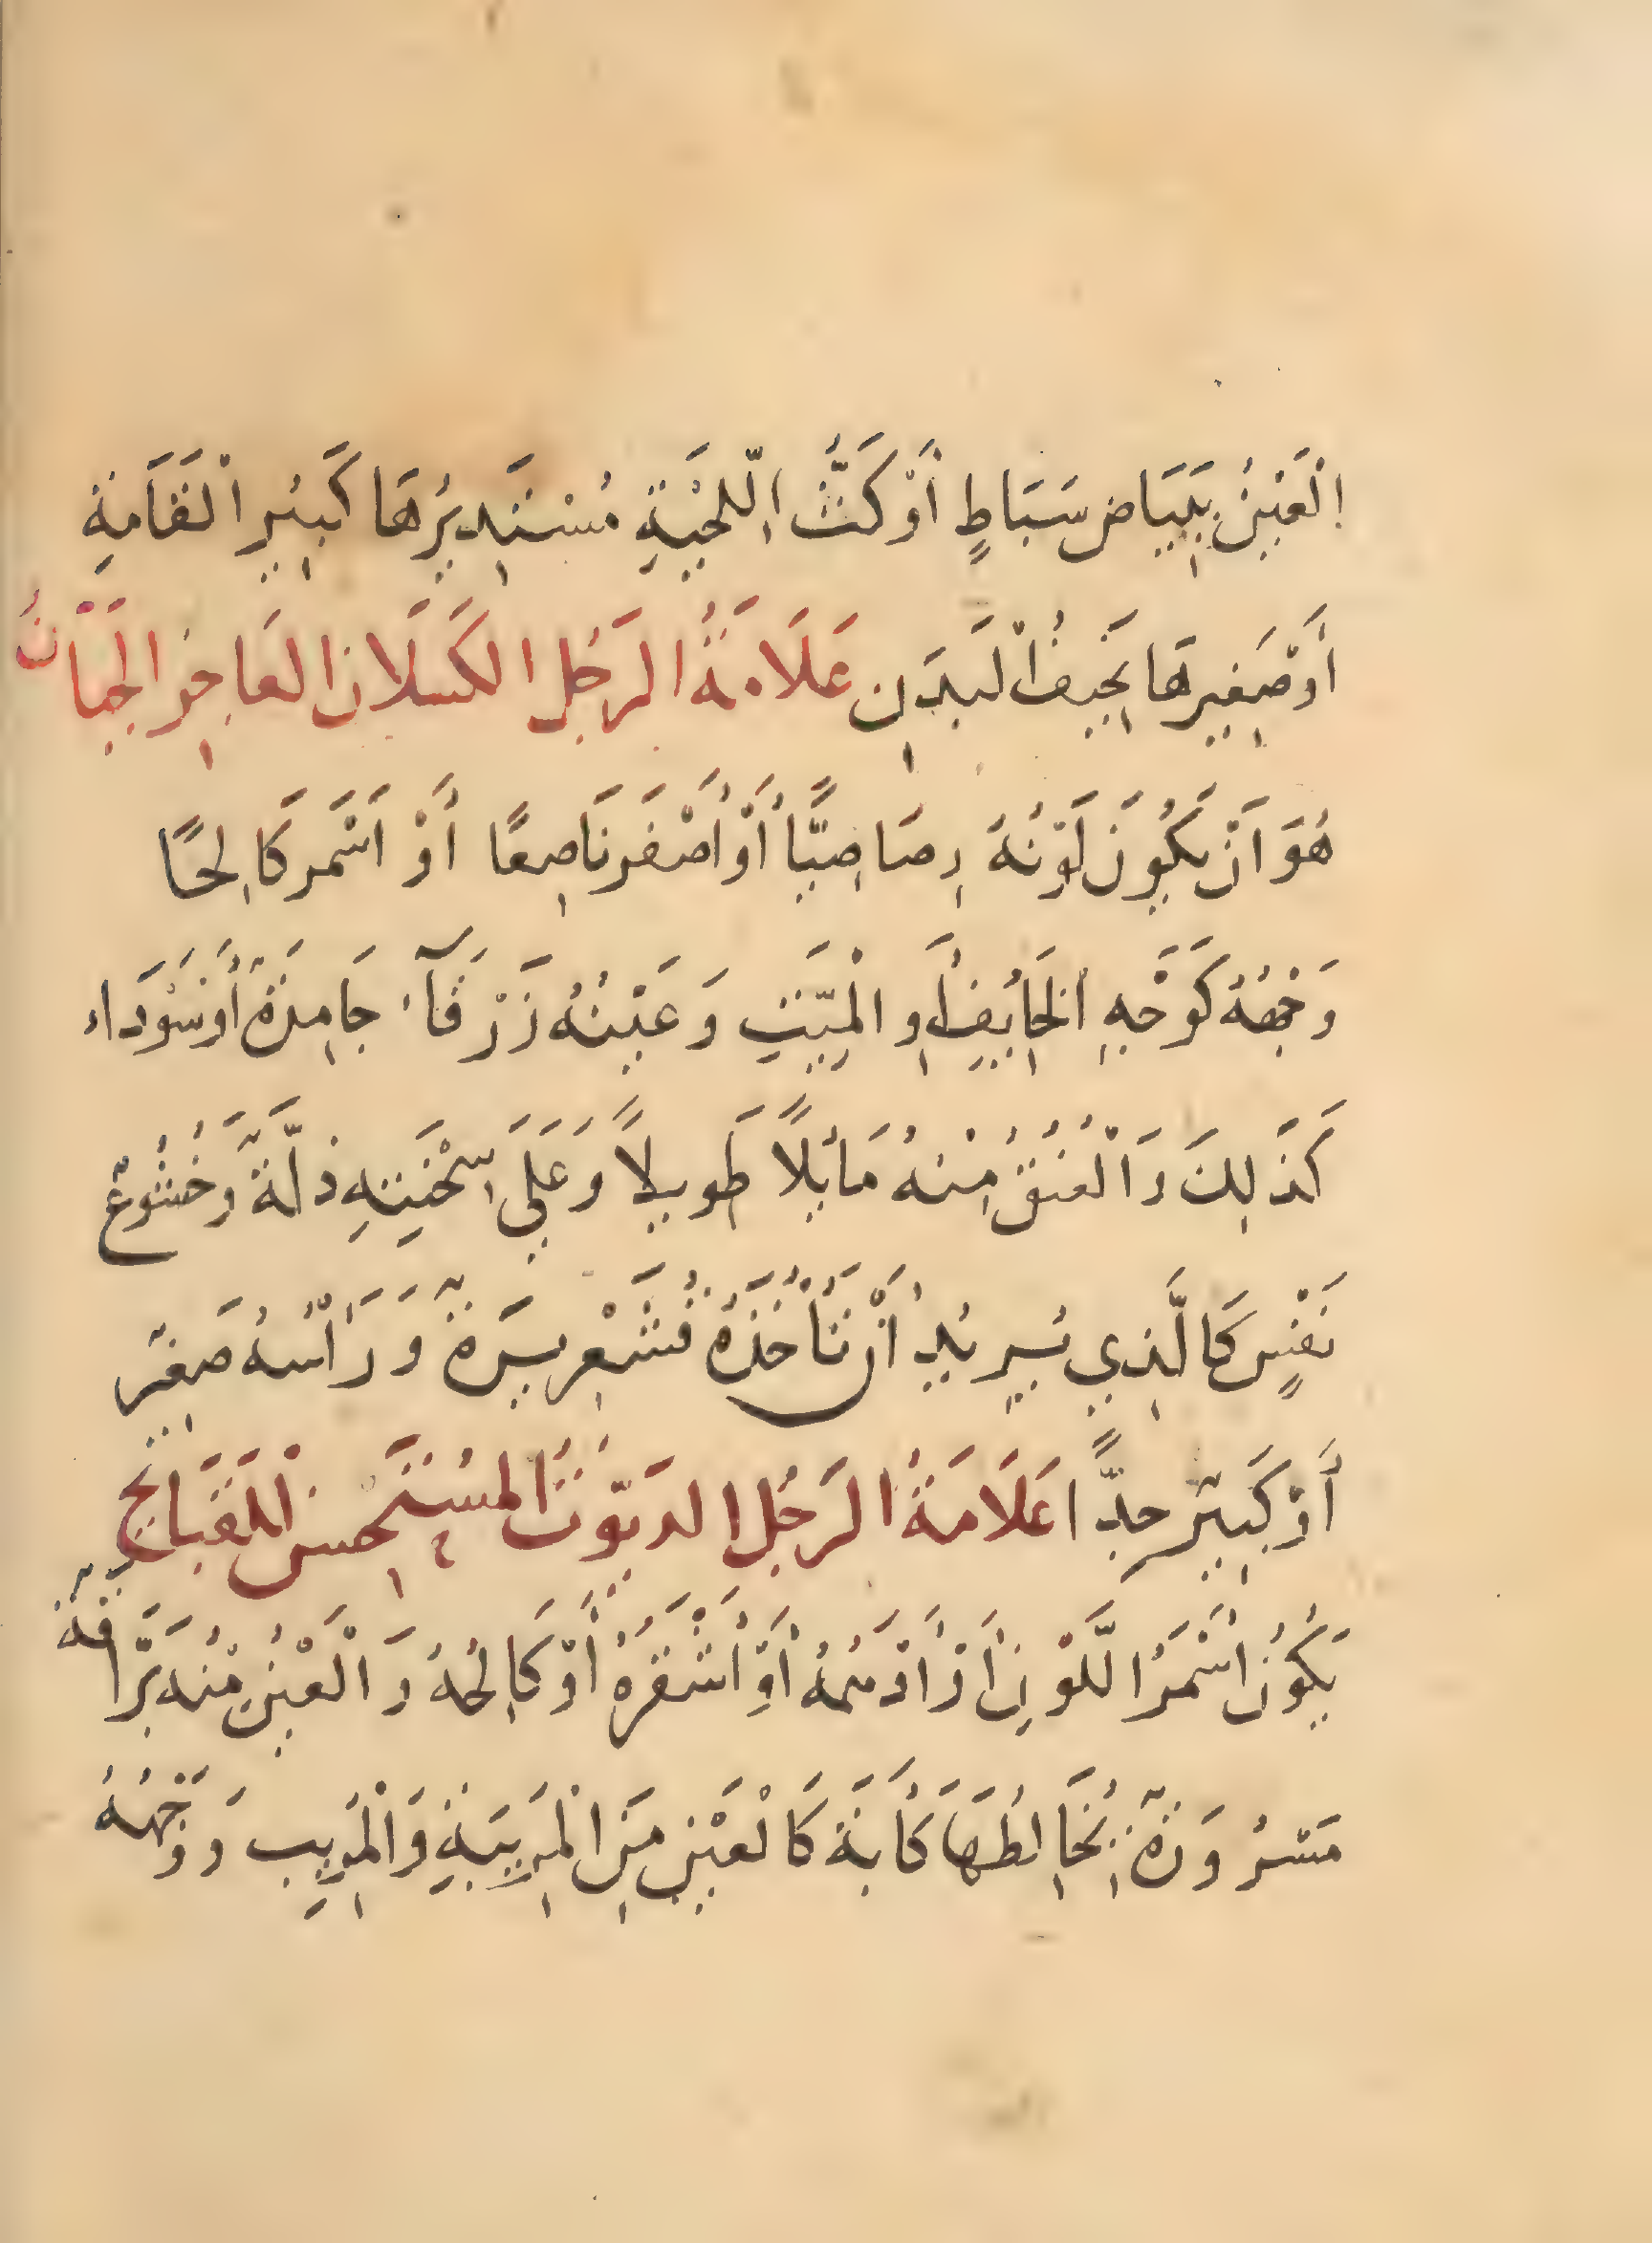 اِلْعَيْنُ بِبَيَاضِ سَبَاطٍ أَوْ كَثُّ اللّحْيَةِ مُسْتَدِيرُهَا كَبِيْرِ الْقَامَةِ
أَوْ صَغِيرِهَا نَحِيفُ الْبَدَنِ عَلَامَةُ الرَجُلِ الكَسَلَانِ العَاجِزِ الجَبَانُ
هُوَ اَنْ يَكُونَ لَوْنُهُ رِصَاصِيًّا أَوْ أَصْفَر نَاصِعًا أَوْ اَسْمَر كَالِحًا
وَجْهُهُ كَوَجْهِ الْخَائِفِ أَوِ الْمَيّتِ وَعَيْنُهُ زَرْقَآءُ جَامِدَةً أَوْ سَوْدَاء
كَذَلِكَ وَالْعُنُقُ مِنْهُ مَائِلاً طَوِيلاً وَعَلَى سَحْنَتِهِ ذلَّةً وَخُشُوعٌ
نَفْسٍ كَالَّذِي يُرِيدُ أَنْ تَأْخُذَهُ قُشَعْرِيرَةٌ وَرَأْسُهُ صَغِيرٌ
أَوْ كَبِيرٌ جِدًّا عَلَامَةُ الرَجُلِ الديّوثُ المُسْتَحْسِن لِلْقَبَائحِ
يَكُونُ أَسْمَرُ اللَّوْنِ أَزْ أَدْسَمُهُ أَوْ أَشْقَرُهُ أَوْ كَالِحُهُ وَالْعَيْنِ مِنْهُ بَرَّاقَةٌ
مَسْرُورَةٌ يُخَالِطُهَا كَأبَةَ كَالْعَيْنِ مِنَ الْمُرِيبَةِ وَالْمُرِيبِ وَوَجْهُهُ